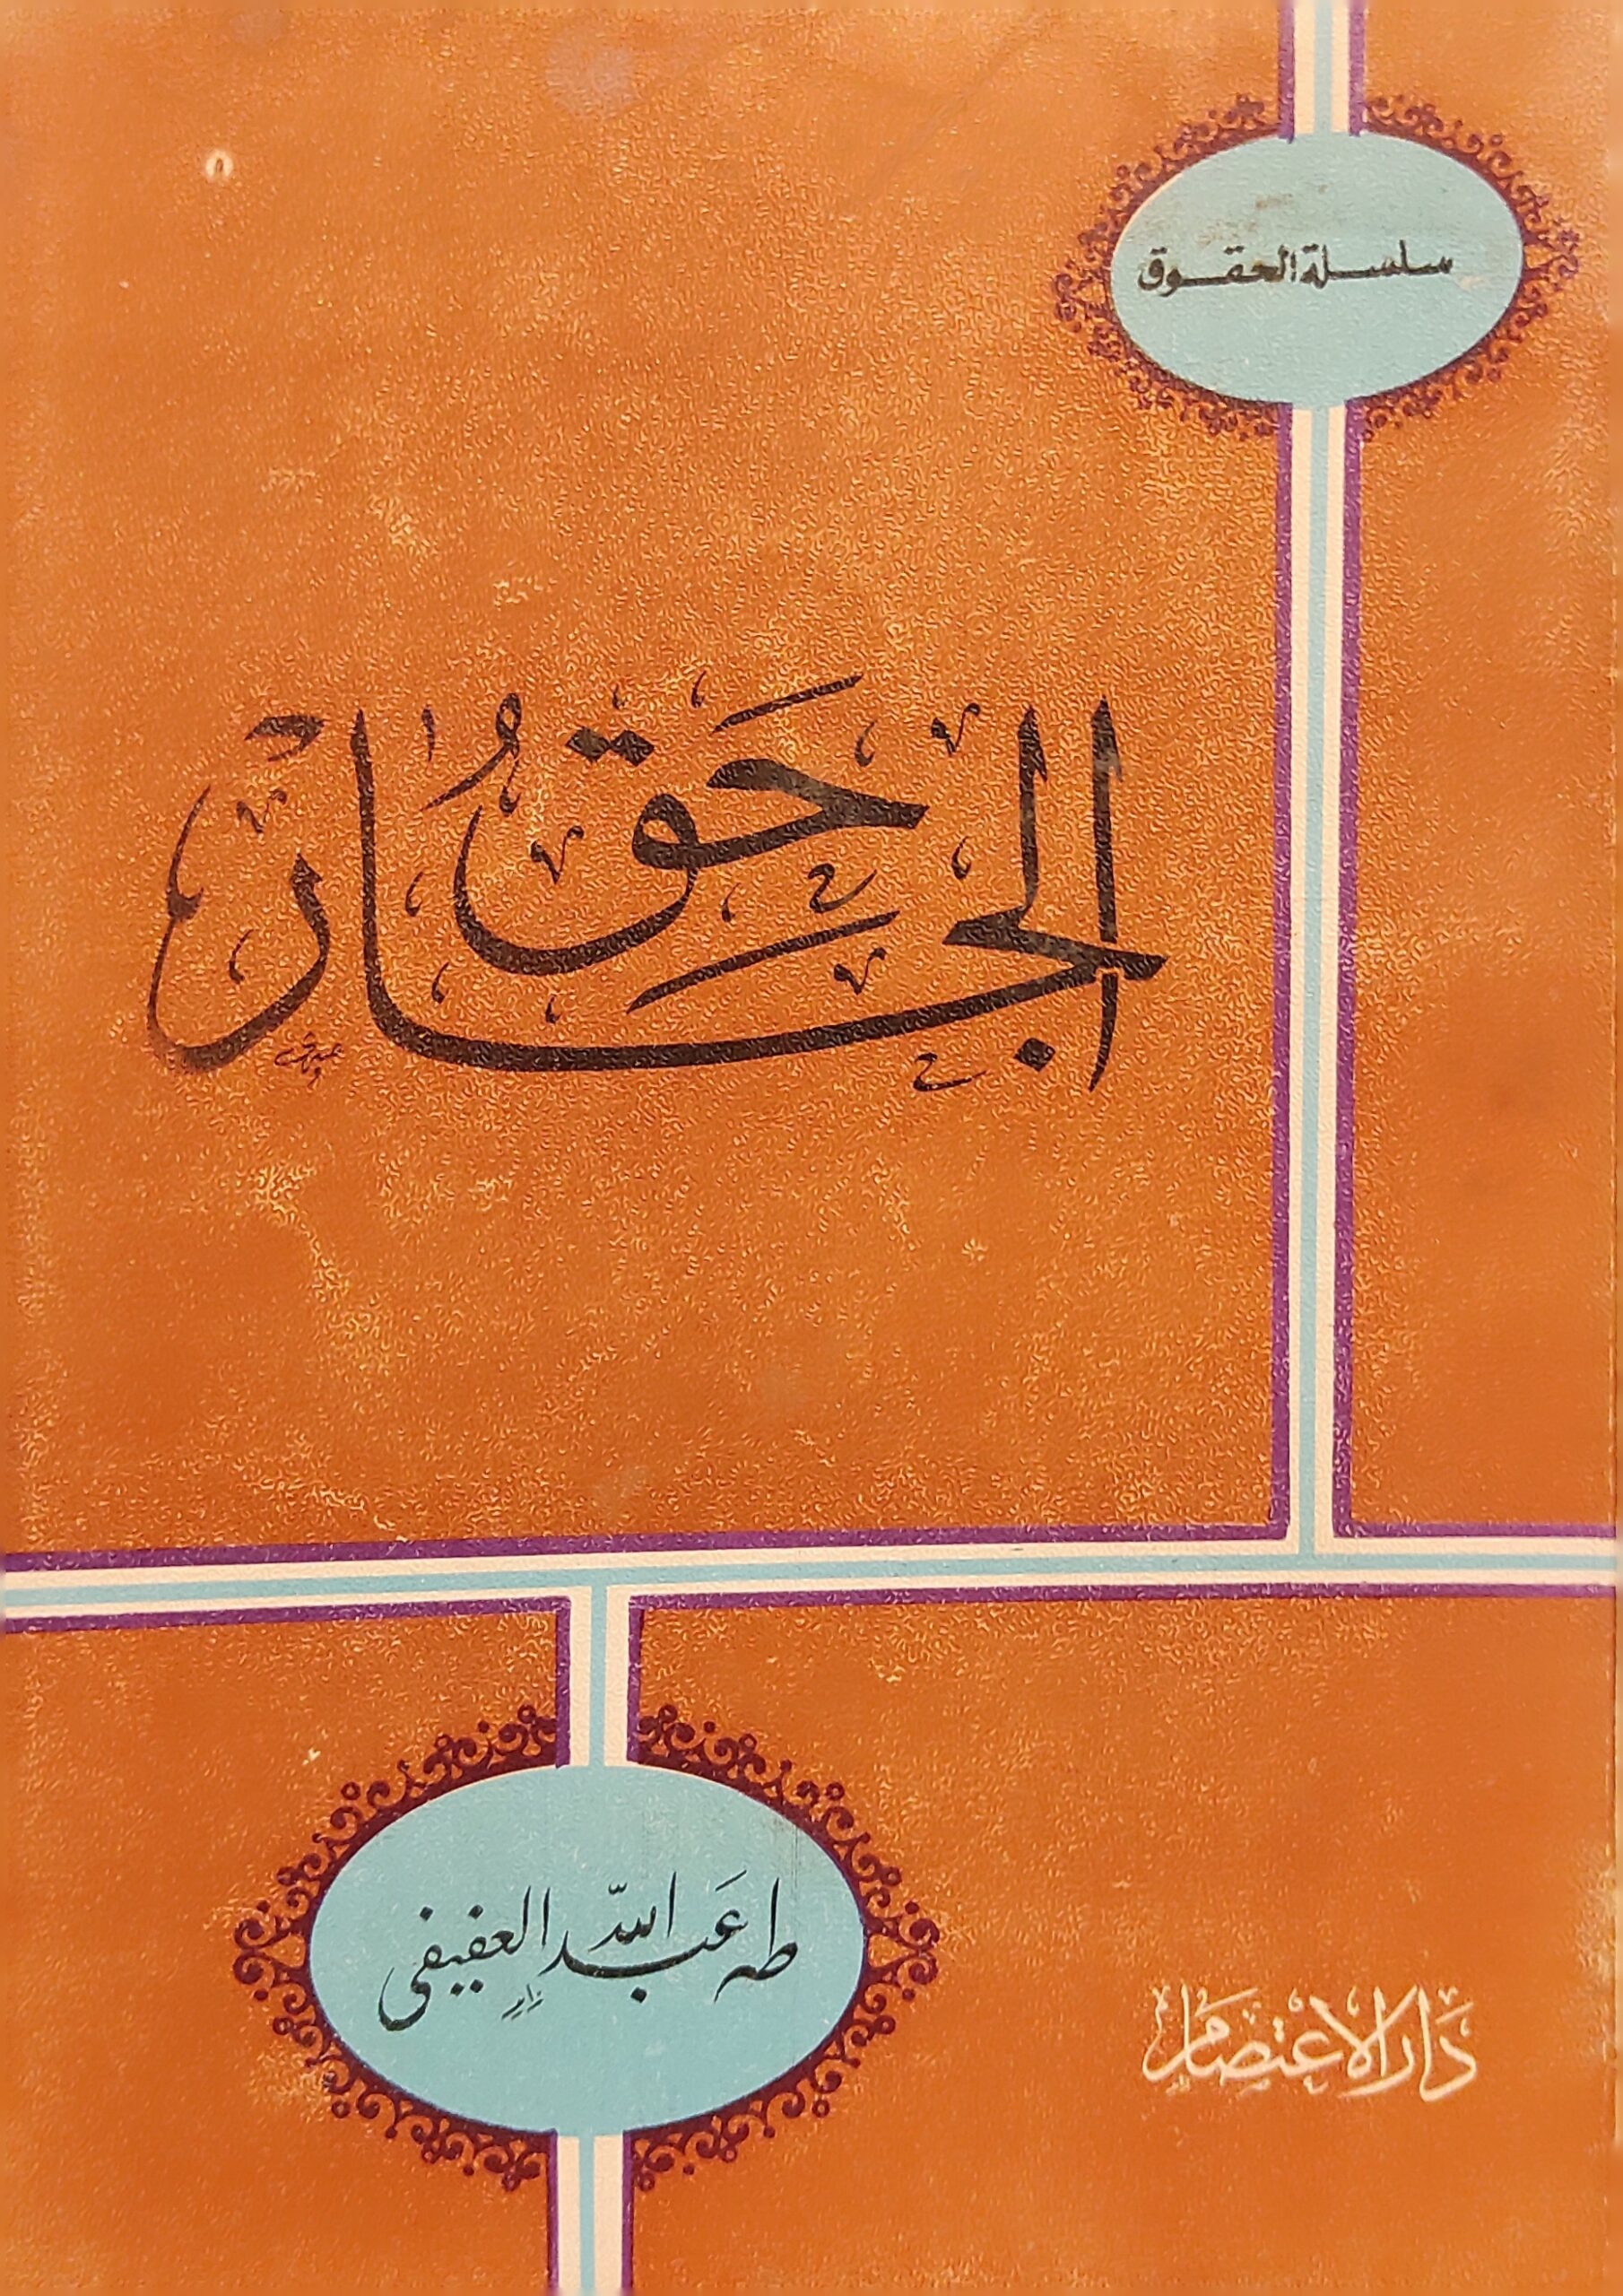 ٥
سلسلة الحقوق
حَقُّ
الجَارْ
طه عَبد الله العفيفي
دَار الاعتصَام